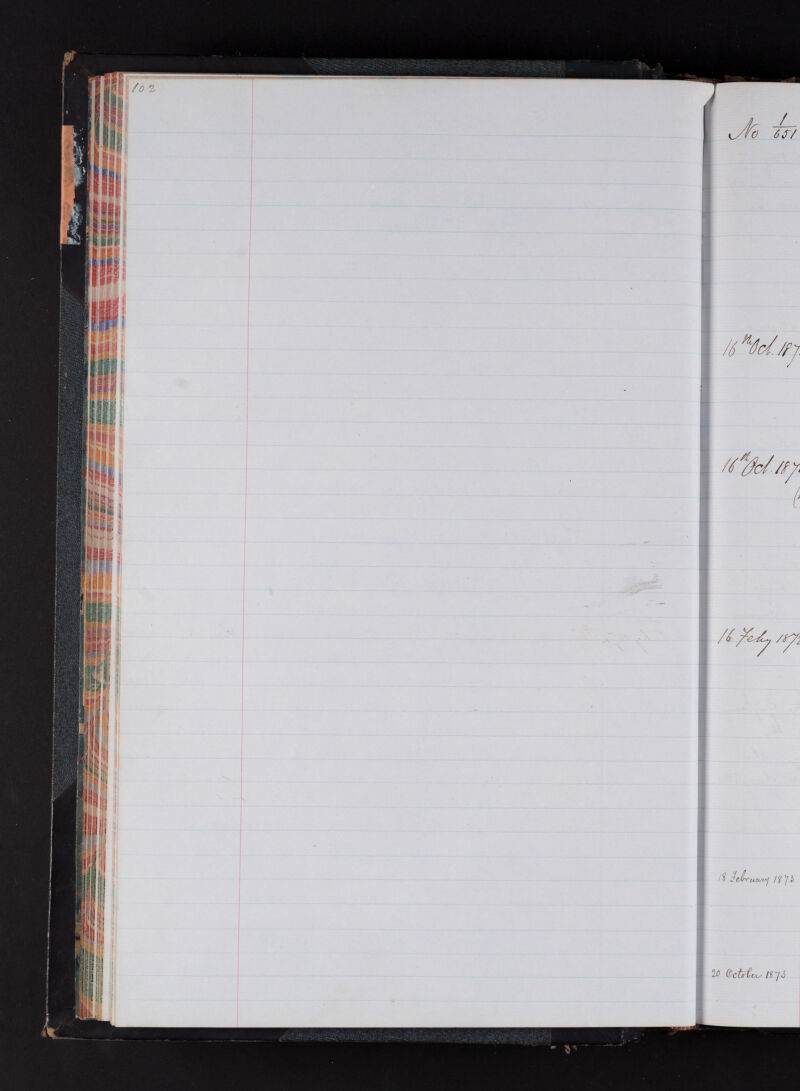 102
No 1/651
16th Oct. 187
16th Oct. 187
16 Feby 187
18 February 1873
20 October 1873